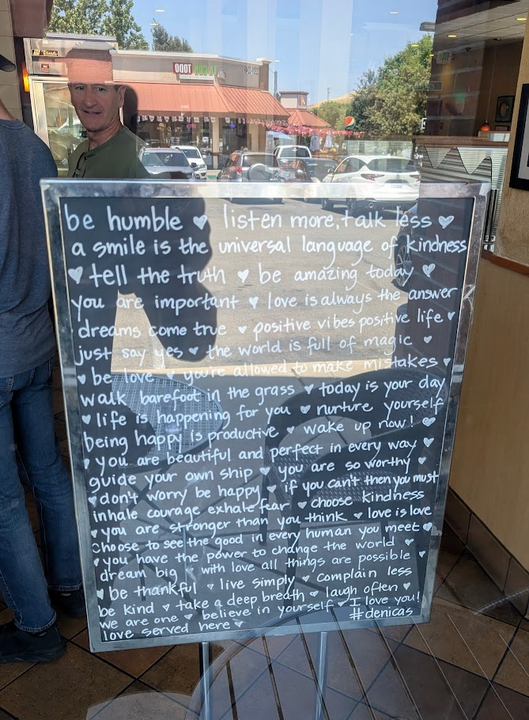 be humble ♥ listen more, talk less ♥
a smile is the universal language of kindness
♥ tell the truth ♥ be amazing today ♥
you are important ♥ love is always the answer
dreams come true ♥ positive vibes positive life ♥
just say yes ♥ the world is full of magic ♥
♥ be love ♥ you're allowed to make mistakes ♥
walk barefoot in the grass ♥ today is your day
♥ life is happening for you ♥ nurture yourself
being happy is productive ♥ wake up now! ♥
♥ you are beautiful and perfect in every way ♥
guide your own ship ♥ you are so worthy ♥
♥ don't worry be happy ♥ if you can't then you must
inhale courage exhale fear ♥ choose kindness
♥ you are stronger than you think ♥ love is love
choose to see the good in every human you meet ♥
♥ you have the power to change the world ♥
dream big ♥ with love all things are possible ♥
♥ be thankful ♥ live simply ♥ complain less
be kind ♥ take a deep breath ♥ laugh often ♥
we are one ♥ believe in yourself ♥ I love you!
love served here ♥ #denicas